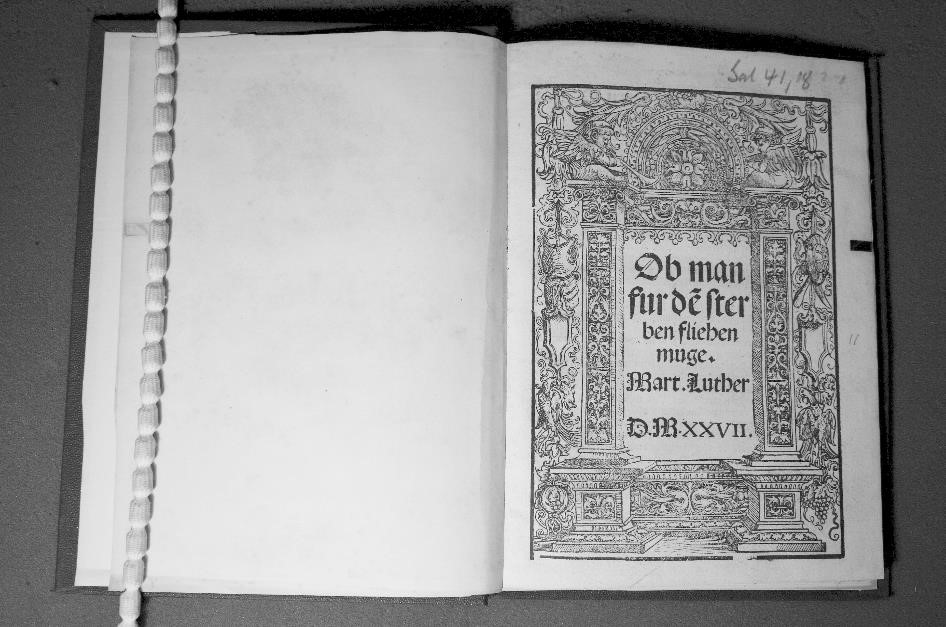 Sal 41, 18
Ob man
fur dẽ ster
ben fliehen
muge.
Mart. Luther
D.M.XXVII.